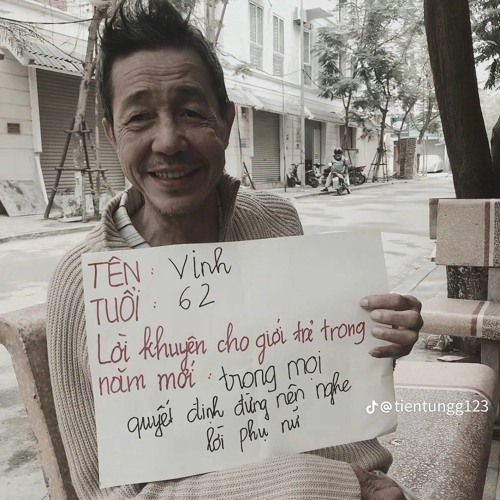 TÊN : Vinh
TUỔI : 62
Lời khuyên cho giới trẻ trong
năm mới : trong mọi
quyết định đừng nên nghe
lời phụ nữ
@tientungg123